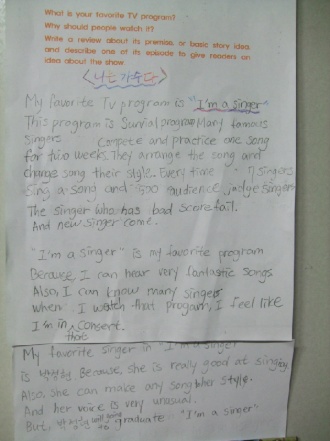 What is your favorite TV program?
Why should people watch it?
Write a review about its premise, or basic story idea
and describe one of its episode to give readers an
idea about the show.
<나는 가수다>
My favorite TV program is "I'm a singer"
This program is Survial program Many famous
singers Compete and practice one song
for two weeks. They arrange the song and
change song their style. Every time 7 singers
Sing a song and 500 audience judge singers
The singer who has bad score fail.
And new singer come.
"I'm a singer" is my favorite program
Because I can hear very fantastic songs
Also, I can know many singers
when I watch that program, I feel like
I'm in consent.
thats
My favorite singer in "I'm a singer"
is 박정현 Because, she is really good at singing
Also, she can make any song her style.
And her voice is very unusual.
But, 박정현 will going to graduate "I'm a singer"